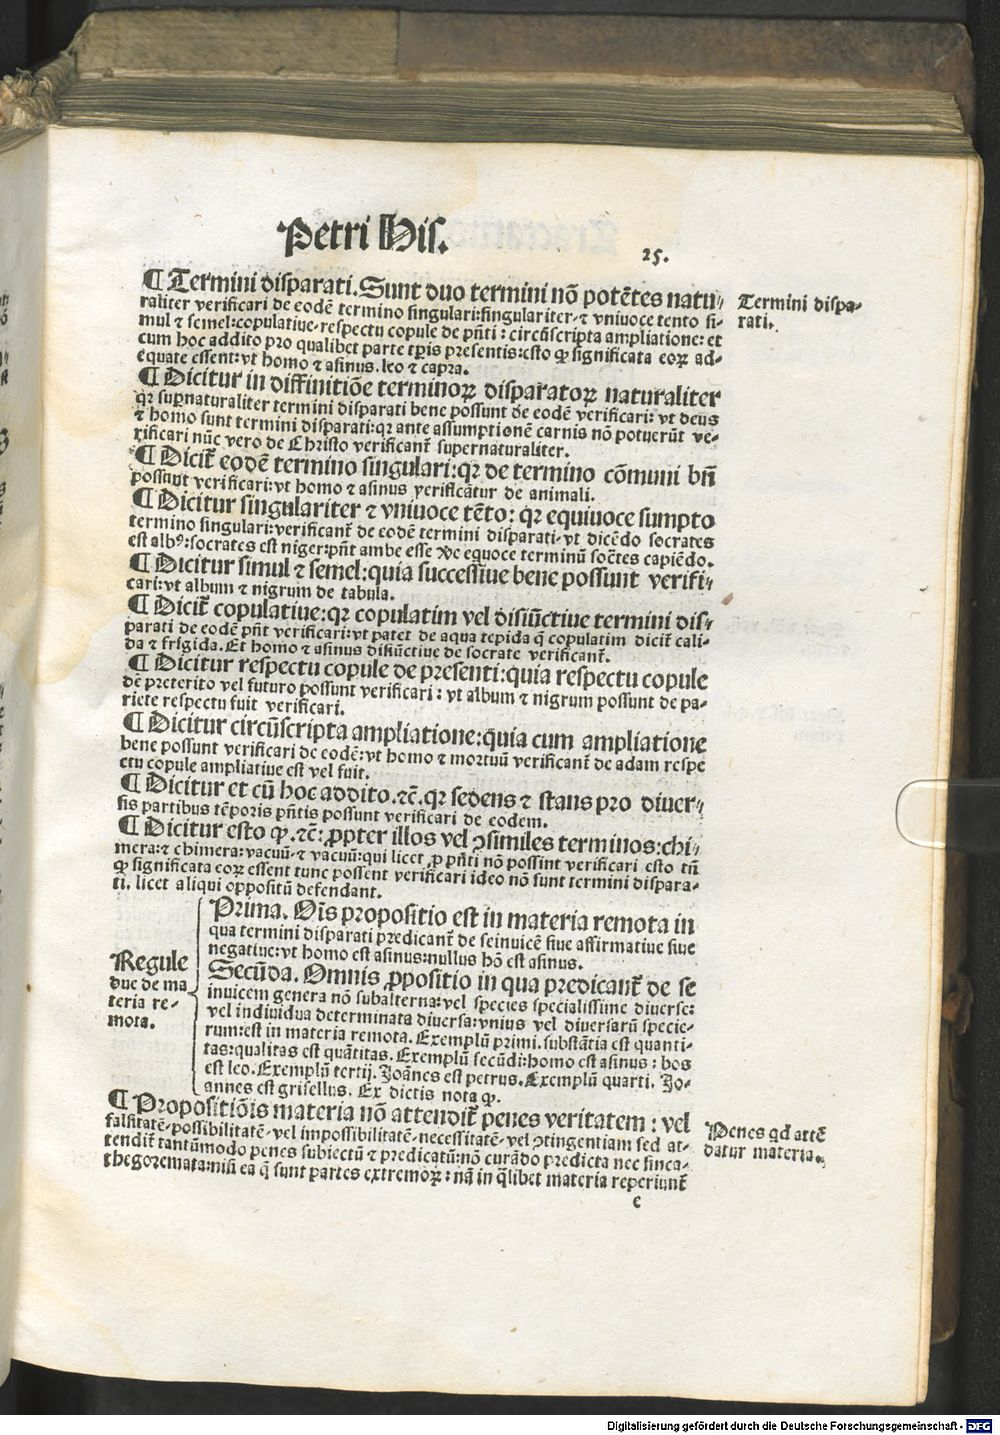 Petri His.
25.
¶ Termini disparati. Sunt duo termini nō potētes natu⸗
raliter verificari de eodē termino singulari: singulariter, ⁊ vniuoce tento si⸗
mul ⁊ semel: copulatiue, respectu copule de pn̄ti: circūscripta ampliatione: et
cum hoc addito pro qualibet parte tp̄is presentis: esto ꝙ significata eoꝝ ad⸗
equate essent: vt homo ⁊ asinus. leo ⁊ capra.
Termini dispa⸗
rati.
¶ Dicitur in diffinitiōe terminoꝝ disparatoꝝ naturaliter
qꝛ supernaturaliter termini disparati bene possunt de eodē verificari: vt deus
⁊ homo sunt termini disparati: qꝛ ante assumptionē carnis nō potuerūt ve⸗
rificari nūc vero de Christo verificant̄ supernaturaliter.
¶ Dicit̄ eodē termino singulari: qꝛ de termino cōmuni bn̄
possunt verificari: vt homo ⁊ asinus verificātur de animali.
¶ Dicitur singulariter ⁊ vniuoce tēto: qꝛ equiuoce sumpto
termino singulari: verificant̄ de eodē termini disparati, vt dicēdo socrates
est albꝰ: socrates est niger: pn̄t ambe esse equoce terminū socr̄tes capiēdo.
¶ Dicitur simul ⁊ semel: quia successiue bene possunt verifi⸗
cari: vt album ⁊ nigrum de tabula.
¶ Dicit̄ copulatiue: qꝛ copulatim vel disiūctiue termini dis⸗
parati de eodē pn̄t verificari: vt patet de aqua tepida q̄ copulatim dicit̄ cali⸗
da ⁊ frigida. Et homo ⁊ asinus disiūctiue de socrate verificant̄.
¶ Dicitur respectu copule de presenti: quia respectu copule
dē preterito vel futuro possunt verificari: vt album ⁊ nigrum possunt de pa⸗
riete respectu fuit verificari.
¶ Dicitur circūscripta ampliatione: quia cum ampliatione
bene possunt verificari de eodē: vt homo ⁊ mortuū verificant̄ de adam respe
ctu copule ampliatiue est vel fuit.
¶ Dicitur et cū hoc addito. ⁊c̄. qꝛ sedens ⁊ stans pro diuer⸗
sis partibus tēporis pn̄tis possunt verificari de eodem.
¶ Dicitur esto ꝙ. ⁊c̄: ꝓpter illos vel ꝯsimiles terminos: chi⸗
mera: ⁊ chimera: vacuū, ⁊ vacuū: qui licet ꝓ pn̄ti nō possint verificari esto tn̄
ꝙ significata eoꝝ essent tunc possent verificari ideo nō sunt termini dispara⸗
ti. licet aliqui oppositū defendant.
Regule
due de ma
teria re⸗
mota.
Prima. Oīs propositio est in materia remota in
qua termini disparati predicant̄ de seinuicē siue affirmatiue siue
negatiue: vt homo est asinus: nullus hō est asinus.
Secūda. Omnis ꝓpositio in qua predicant̄ de se
inuicem genera nō subalterna: vel species specialissime diuerse:
vel indiuidua determinata diuersa: vnius vel diuersarū specie⸗
rum: est in materia remota. Exemplū primi. substātia est quanti⸗
tas: qualitas est quātitas. Exemplū secūdi: homo est asinus: bos
est leo. Exemplū tertij. Joānes est petrus. Exemplū quarti. Jo⸗
annes est grisellus. Ex dictis nota ꝙ.
¶ Propositiōis materia nō attendit̄ penes veritatem: vel
falsitatē, possibilitatē, vel impossibilitatē, necessitatē, vel ꝯtingentiam sed at⸗
tendit̄ tantūmodo penes subiectū ⁊ predicatū: nō curādo predicta nec sinca⸗
thegoremata: nisi ea q̄ sunt partes extremoꝝ: nā in q̄libet materia reperiunt̄
Penes qd attē
datur materia.
e
Digitalisierung gefördert durch die Deutsche Forschungsgemeinschaft - DFG